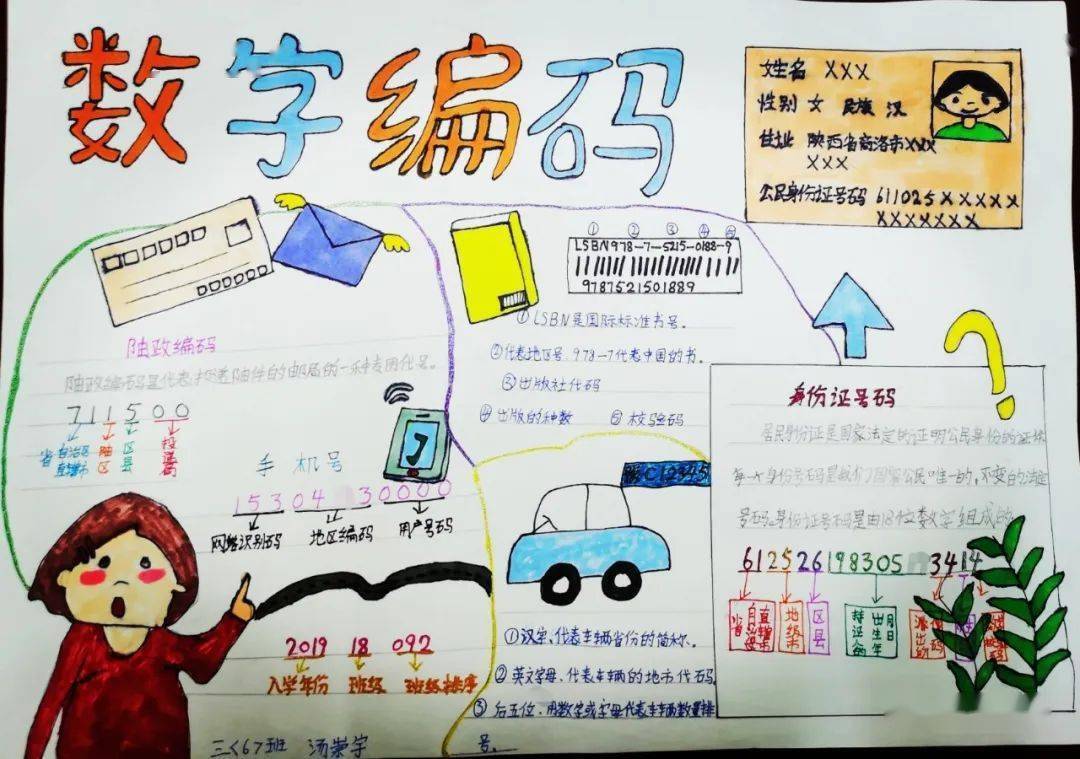 数字编码
姓名 XXX
性别 女 民族 汉
住址 陕西省商洛市XXX
XXX
公民身份证号码 611025XXXXX
XXXXXXX
① ② ③ ④ ⑤
LSBN978-7-5215-0188-9
9787521501889
①LSBN是国际标准书号。
②代表地区号、978-7代表中国的书。
③出版社代码
④出版的种数 ⑤校验码
邮政编码
邮政编码是代表投递邮件的邮局的一种专用代号。
711500
省 自治区 直辖市
邮区
区县
手机号
15304 30000
网络识别码 地区编码 用户号码
2019 18 092
入学年份 班级 班级排序
三<6>班 汤崇宇
C12345
①汉字、代表车辆省份的简称。
②英文字母、代表车辆的地方代码
③后五位、用数字或字母代表车辆数量排
号。
身份证号码
居民身份证是国家法定的证明公民身份的证件
号码。身份证号码是由18位数字组成的
612526198305 3414
省 自治区 直辖市
地级市
区县
持证人的出生年月日